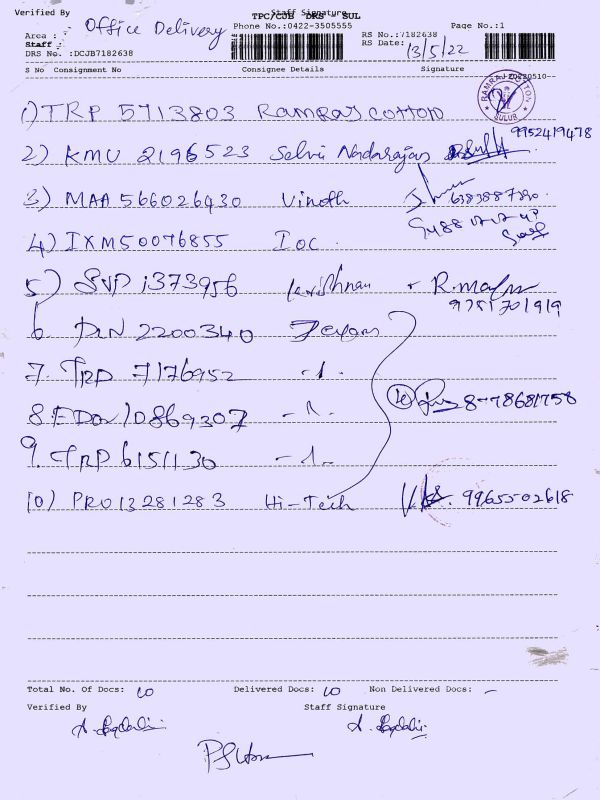 Verified By
Staff Signature
TPC/CJB DRS - SUL
Office Delivery
Phone No.:0422-3505555
Page No.:1
Area :
RS No.:7182638
Staff :
RS Date: 13/5/22
DRS No. :DCJB7182638
S No Consignment No Consignee Details Signature
RAMRAJ COTTON
SULUR
1) TRP 5713803 Ramraj cotton
2) KMU 2196523 Selvi Nadarajan 9952419478
3) MAA 566026430 Vinoth 6383887390
4) IXM50076855 Ioc.
5) SVP 1373956 krishnan
9751701919
6. DLN 2200340
7. TRD 7176952 -1-
8. EDO 10869307 -1-
9. TRP 6151130 -1-
10) PRO13281283 Hi-Tech 9965502618
Total No. Of Docs: 10 Delivered Docs: 10 Non Delivered Docs: -
Verified By Staff Signature